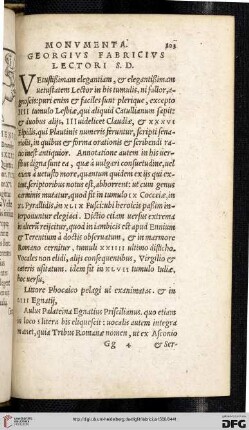 MONVMENTA. 303
GEORGIVS FABRICIVS
LECTORI S.D.
VEtustissimam elegantiam, & elegantissimam
vetustatem Lector in bis tumulis, ni fallor, a-
gnoscis: puri enim & faciles sunt pleriq;, excepto
IIII tumulo Lesbiæ, qui aliquid Catullianum sapit:
& duobus alijs, III uidelicet Claudiæ, & XXXVI
Elpidis, qui Plautinis numeris feruntur, scripti sena-
rijs, in quibus & forma orationis & scribendi ra-
tio inest antiquior. Annotatione autem in bis uer-
sibus digna sunt ea, quæ à uulgari consuetudine, uel
etiam à uetusto more, quantum quidem ex ijs qui ex-
tant, scriptoribus notus est, abhorrent: ut cum genus
carminis mutatur, quod fit in tumulo IX Cocceiæ, in
XI Pyralidis, in XLIX Fusci: ubi heroicis passim in-
terponuntur elegiaci. Dictio etiam uersus extrema
in alterū reijcitur, quod in iambicis est apud Ennium
& Terentium à doctis obseruatum, & in marmore
Romano cernitur, tumulo XXIIII ultimo disticho.
Vocales non elidi, alijs consequentibus, Virgilio &
cæteris usitatum. idem fit in XLVII tumulo Iuliæ,
hoc uersu,
Littore Phocaico pelagi ui exanimatæ. & in
IIII Egnatij,
Aulus Palatina Egnatius Priscillianus. quo etiam
in loco s litera bis eliquescit: uocalis autem integra
manet, quia Tribus Romanæ nomen, ut ex Ausonij
Gg 4 & Ser-
UNIVERSITÄTS-
BIBLIOTHEK
HEIDELBERG
DFG